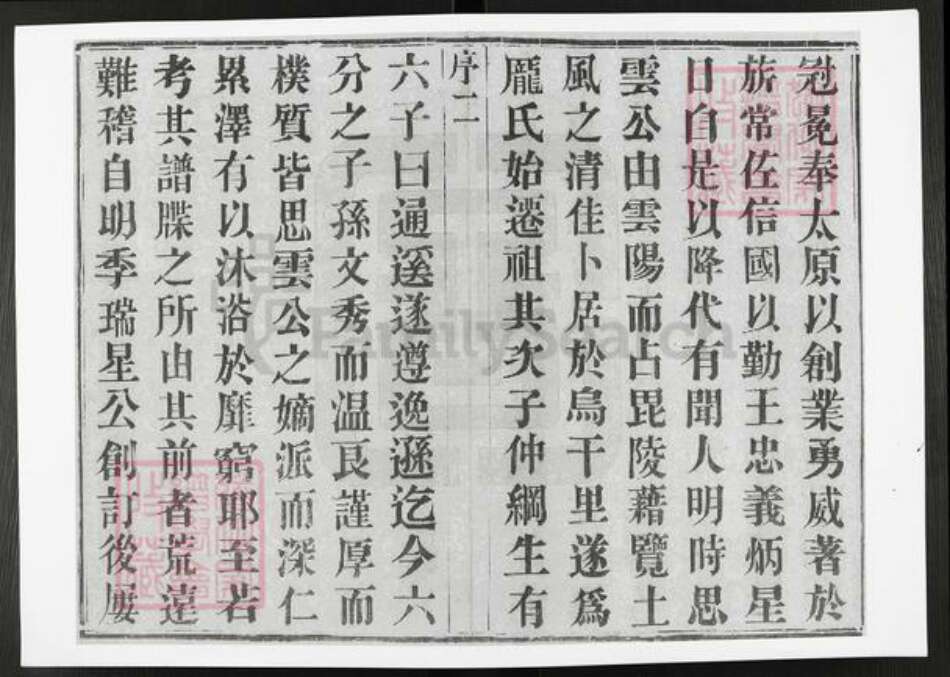 冠冕奉太原以創業勇威著於
旂常佐信國以勤王忠義炳星
日自是以降代有聞人明時思
雲公由雲陽而占毘陵藉覽土
風之清佳卜居於烏干里遂爲
龐氏始遷祖其次子仲綱生有
序二
六子曰通溪遂遵逸遜迄今六
分之子孫文秀而温良謹厚而
樸質皆思雲公之嫡派而深仁
累澤有以沐浴於靡窮耶至若
考其譜牒之所由其前者荒遠
難稽自明季瑞星公創訂後屢
FamilySearch